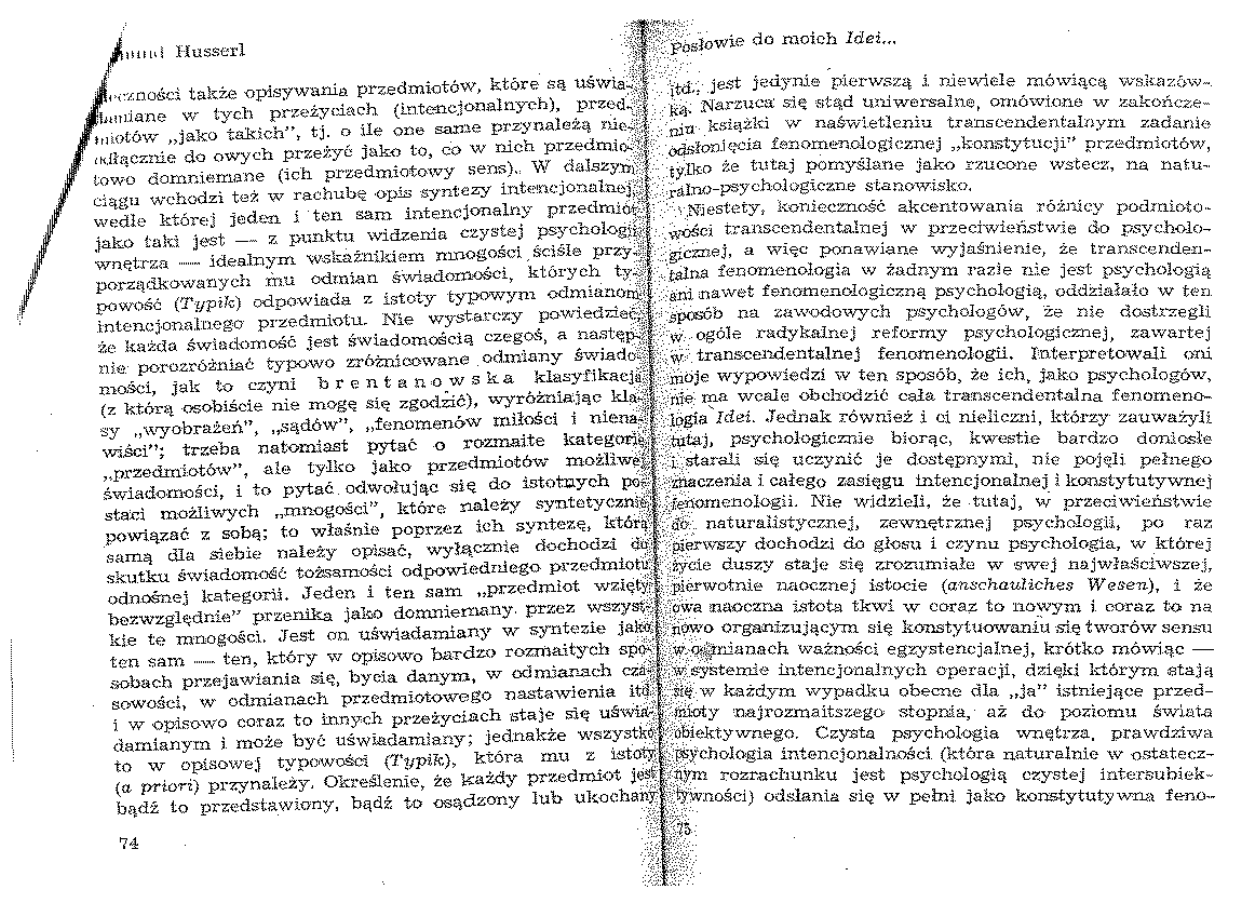 Husserl
także opisywania przedmiotów, które są uświa-
w tych przeżyciach (intencjonalnych), przed-
miotów „jako takich”, tj. o ile one same przynależą nie-
odłącznie do owych przeżyć jako to, co w nich przedmio-
towo domniemane (ich przedmiotowy sens). W dalszym
ciągu wchodzi też w rachubę opis syntezy intencjonalnej,
wedle której jeden i ten sam intencjonalny przedmiot
jako taki jest — z punktu widzenia czystej psychologii
wnętrza — idealnym wskaźnikiem mnogości ściśle przy-
porządkowanych mu odmian świadomości, których ty-
powość (Typik) odpowiada z istoty typowym odmianom
intencjonalnego przedmiotu. Nie wystarczy powiedzieć,
że każda świadomość jest świadomością czegoś, a następ-
nie porozróżniać typowo zróżnicowane odmiany świado-
mości, jak to czyni brentanowska klasyfikacja
(z którą osobiście nie mogę się zgodzić), wyróżniając kla-
sy „wyobrażeń”, „sądów”, „fenomenów miłości i niena-
wiści”; trzeba natomiast pytać o rozmaite kategorie
„przedmiotów”, ale tylko jako przedmiotów możliwej
świadomości, i to pytać odwołując się do istotnych po-
staci możliwych „mnogości”, które należy syntetycznie
powiązać z sobą; to właśnie poprzez ich syntezę, którą
samą dla siebie należy opisać, wyłącznie dochodzi do
skutku świadomość tożsamości odpowiedniego przedmiotu
odnośnej kategorii. Jeden i ten sam „przedmiot wzięty
bezwzględnie” przenika jako domniemany przez wszyst-
kie te mnogości. Jest on uświadamiany w syntezie jako
ten sam — ten, który w opisowo bardzo rozmaitych spo-
sobach przejawiania się, bycia danym, w odmianach cza-
sowości, w odmianach przedmiotowego nastawienia itd.
i w opisowo coraz to innych przeżyciach staje się uświa-
damianym i może być uświadamiany; jednakże wszystko
to w opisowej typowości (Typik), która mu z istoty
(a priori) przynależy. Określenie, że każdy przedmiot jest
bądź to przedstawiony, bądź to osądzony lub ukochany
74
Posłowie do moich Idei...
itd., jest jedynie pierwszą i niewiele mówiącą wskazów-
ką. Narzuca się stąd uniwersalne, omówione w zakończe-
niu książki w naświetleniu transcendentalnym zadanie
odsłonięcia fenomenologicznej „konstytucji” przedmiotów,
tylko że tutaj pomyślane jako rzucone wstecz, na natu-
ralno-psychologiczne stanowisko.
Niestety, konieczność akcentowania różnicy podmioto-
wości transcendentalnej w przeciwieństwie do psycholo-
gicznej, a więc ponawiane wyjaśnienie, że transcenden-
talna fenomenologia w żadnym razie nie jest psychologią
ani nawet fenomenologiczną psychologią, oddziałało w ten
sposób na zawodowych psychologów, że nie dostrzegli
w ogóle radykalnej reformy psychologicznej, zawartej
w transcendentalnej fenomenologii. Interpretowali oni
moje wypowiedzi w ten sposób, że ich, jako psychologów,
nie ma wcale obchodzić cała transcendentalna fenomeno-
logia Idei. Jednak również i ci nieliczni, którzy zauważyli
tutaj, psychologicznie biorąc, kwestie bardzo doniosłe
i starali się uczynić je dostępnymi, nie pojęli pełnego
znaczenia i całego zasięgu intencjonalnej i konstytutywnej
fenomenologii. Nie widzieli, że tutaj, w przeciwieństwie
do naturalistycznej, zewnętrznej psychologii, po raz
pierwszy dochodzi do głosu i czynu psychologia, w której
życie duszy staje się zrozumiałe w swej najwłaściwszej,
pierwotnie naocznej istocie (anschauliches Wesen), i że
owa naoczna istota tkwi w coraz to nowym i coraz to na
nowo organizującym się konstytuowaniu się tworów sensu
w odmianach ważności egzystencjalnej, krótko mówiąc —
w systemie intencjonalnych operacji, dzięki którym stają
się w każdym wypadku obecne dla „ja” istniejące przed-
mioty najrozmaitszego stopnia, aż do poziomu świata
obiektywnego. Czysta psychologia wnętrza, prawdziwa
psychologia intencjonalności (która naturalnie w ostatecz-
nym rozrachunku jest psychologią czystej intersubiek-
tywności) odsłania się w pełni jako konstytutywna feno-
75